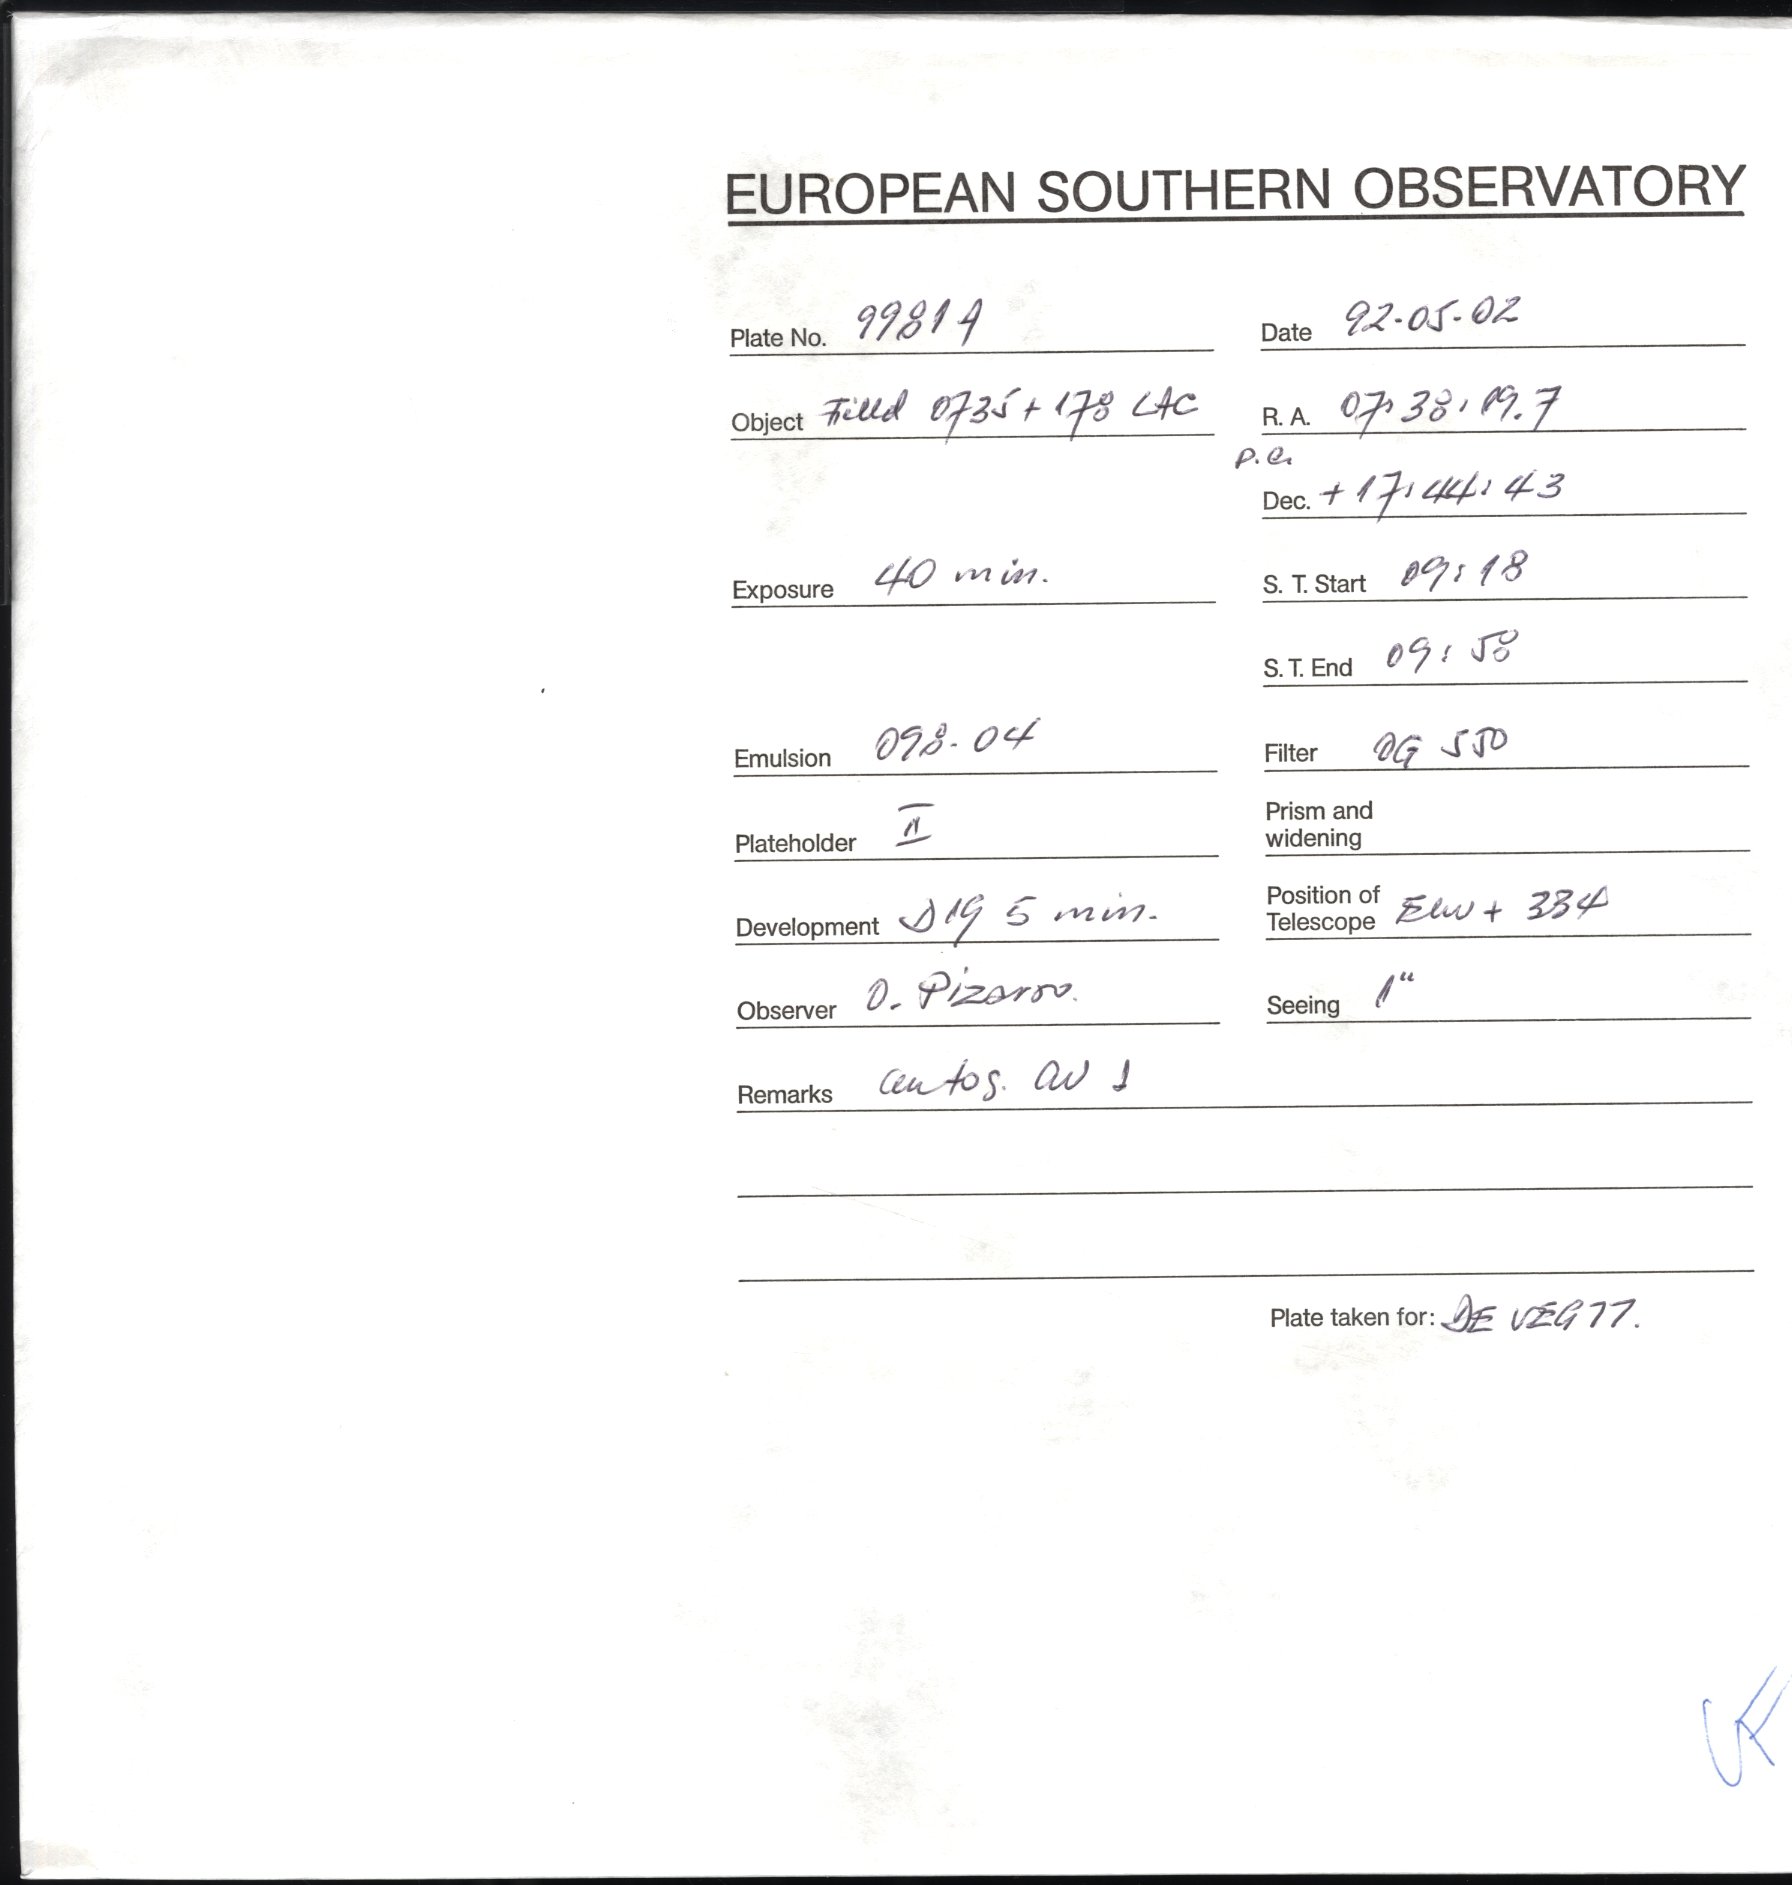 EUROPEAN SOUTHERN OBSERVATORY
Plate No. 9981A Date 92-05-02
Object Field 0735+178 LAC R. A. 07:38:19.7
P.C.
Dec. +17:44:43
Exposure 40 min. S. T. Start 09:18
S. T. End 09:58
Emulsion 098-04 Filter OG 550
Plateholder II Prism and widening
Development D19 5 min. Position of Telescope EW + 334
Observer O. Pizarro. Seeing 1"
Remarks 1
Plate taken for: DE VEGTT.